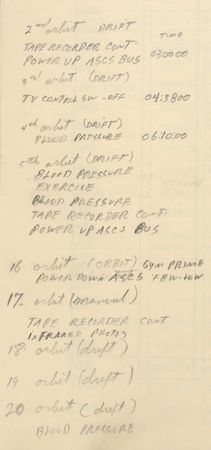 2nd orbit DRIFT TIME
TAPE RECORDER CONT.
POWER UP ASCS BUS 030000
3rd orbit (DRIFT)
TV CONTROL SW - OFF 043800
4th orbit (DRIFT)
BLOOD PRESSURE 06:10:00
5th orbit (DRIFT)
BLOOD PRESSURE
EXERCISE
BLOOD PRESSURE
TAPE RECORDER CONT
POWER UP ASCS BUS
16 orbit (ORBIT) GYM PRIME
POWER DOWN ASCS FBW-LOW
17. orbit (manual)
TAPE RECORDER CONT.
INFRARED PHOTOS
18. orbit (drift)
19 orbit (drift)
20 orbit (drift)
BLOOD PRESSURE